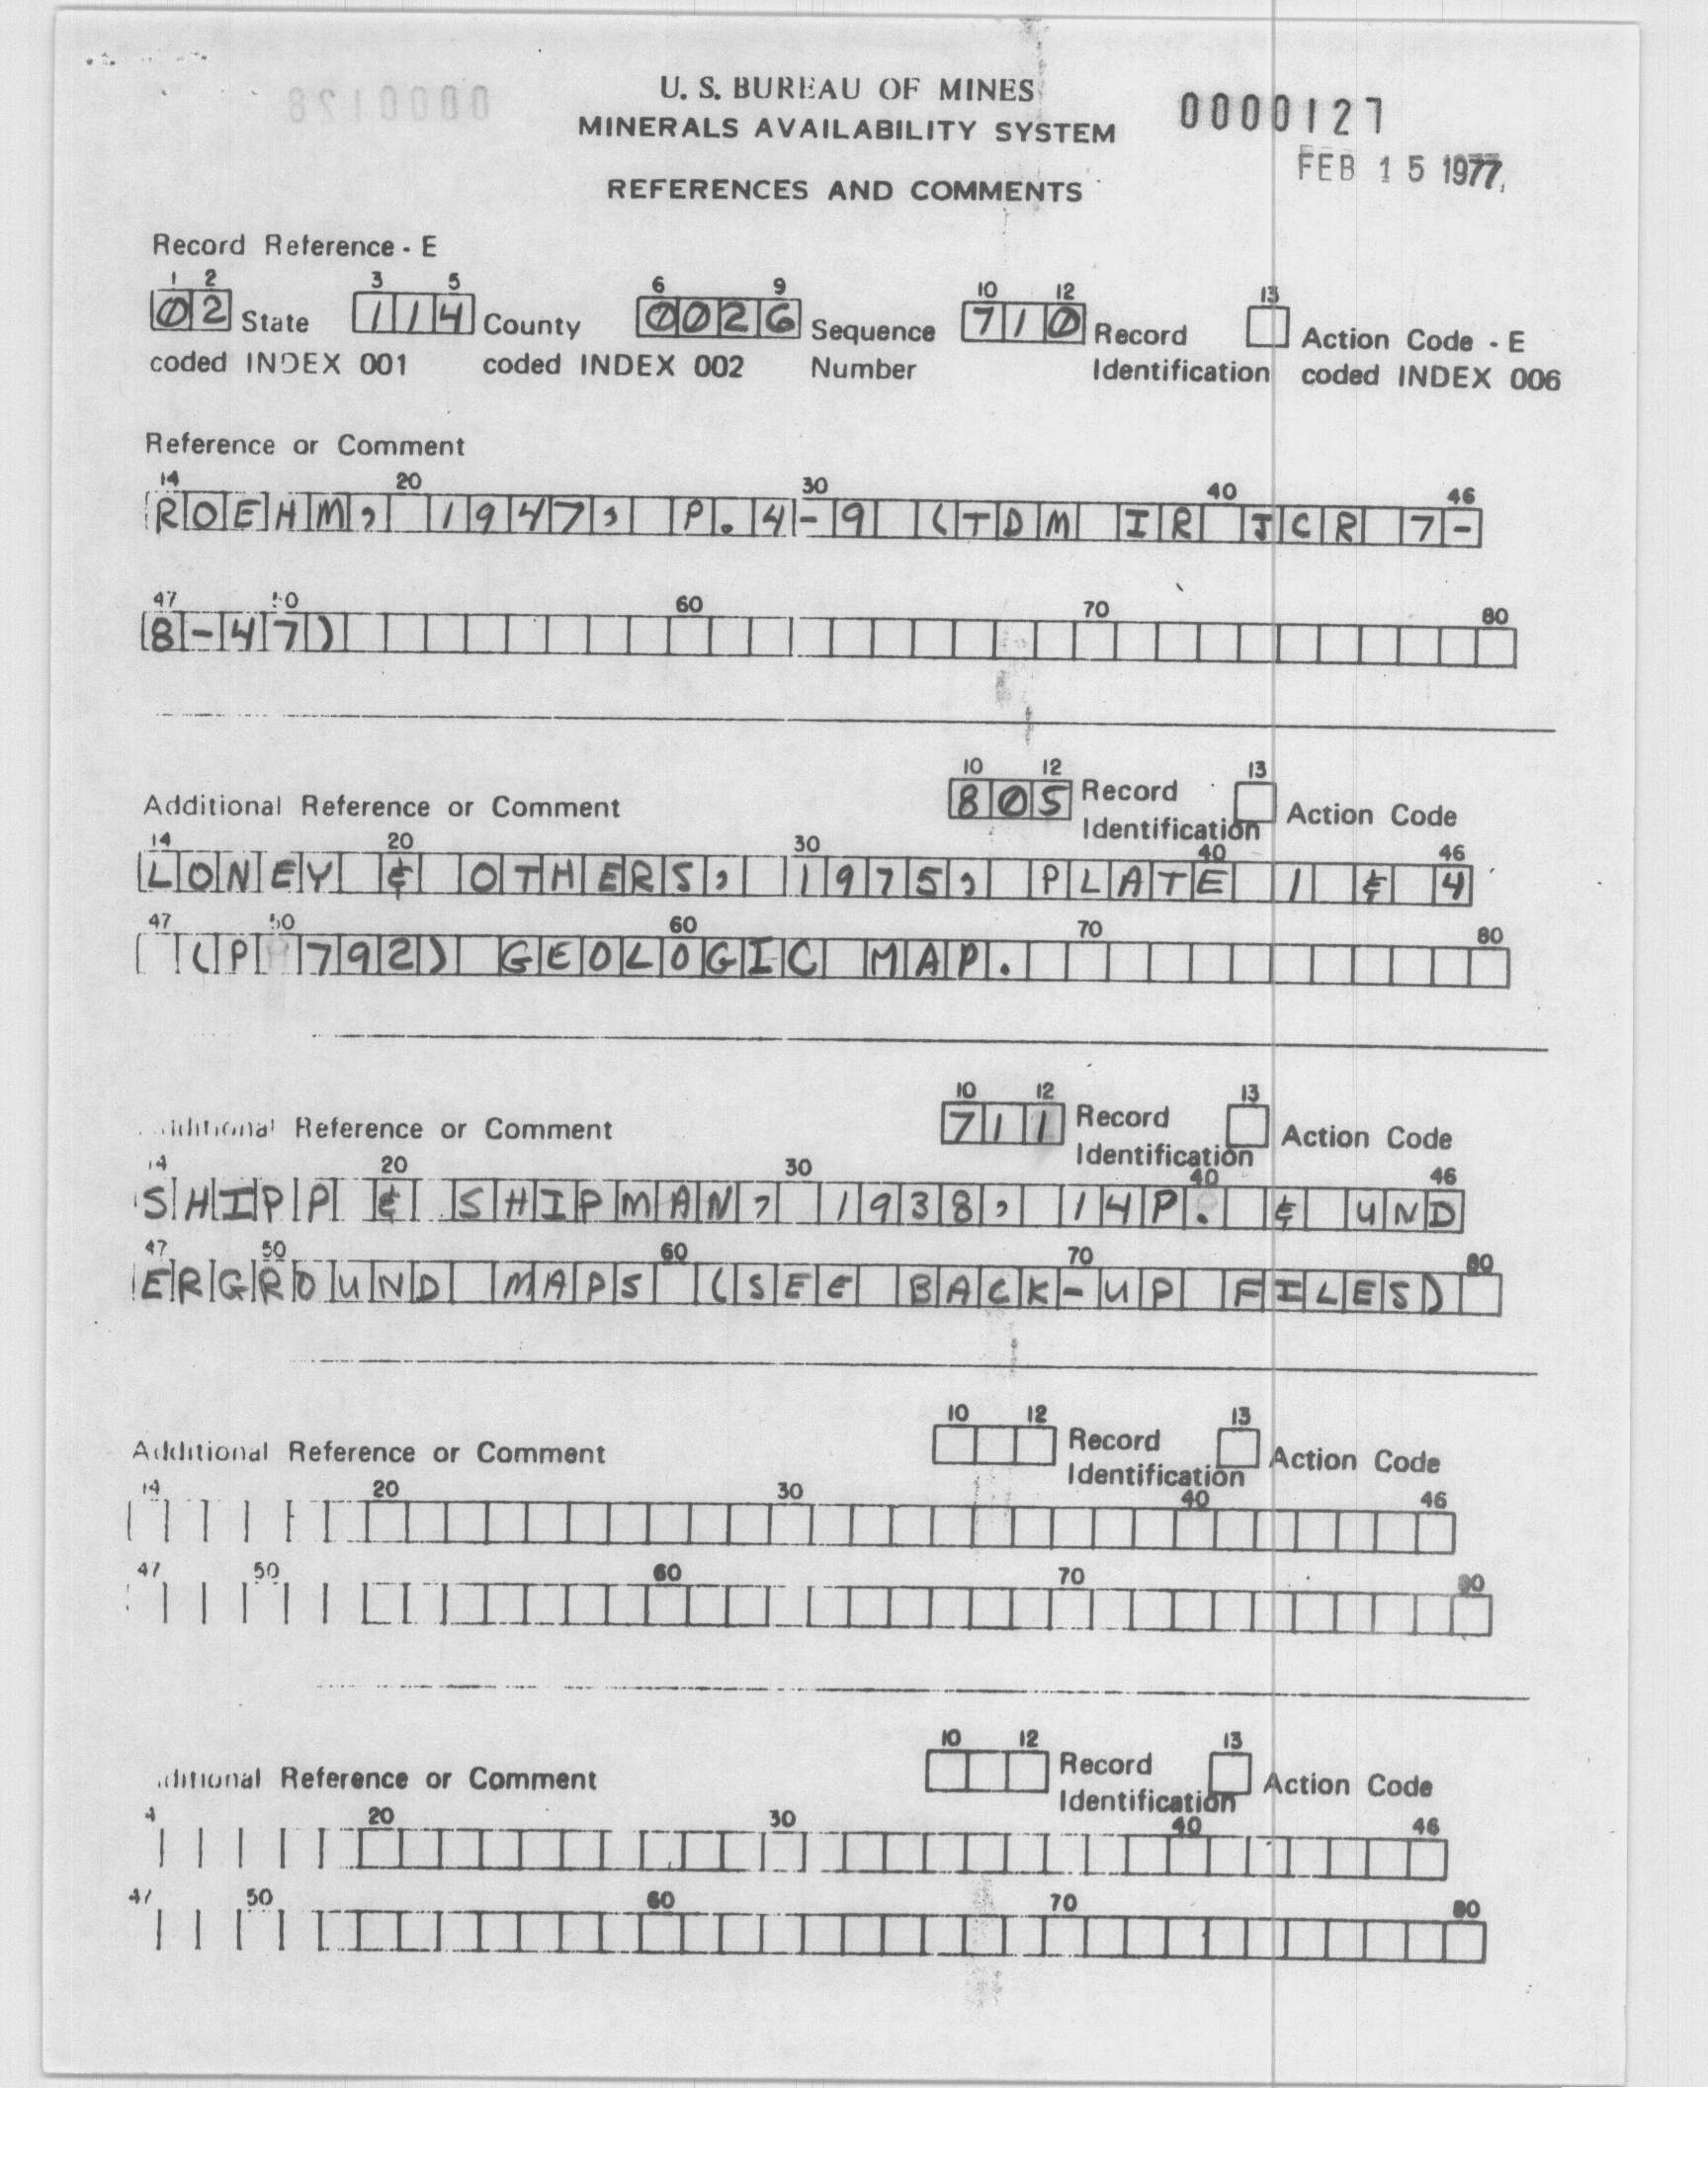 U. S. BUREAU OF MINES
MINERALS AVAILABILITY SYSTEM
0000127
FEB 15 1977
REFERENCES AND COMMENTS
Record Reference - E
1 2 3 5 6 9 10 12 13
02 State 114 County 0026 Sequence 710 Record Action Code - E
coded INDEX 001 coded INDEX 002 Number Identification coded INDEX 006
Reference or Comment
14 20 30 40 46
ROEHM, 1947, P.4-9 (TDM IR JCR 7-
47 50 60 70 80
8-47)
10 12 13
Additional Reference or Comment 805 Record Identification Action Code
14 20 30 40 46
LONEY & OTHERS, 1975, PLATE 1 & 4
47 50 60 70 80
(P 792) GEOLOGIC MAP.
10 12 13
Additional Reference or Comment 711 Record Identification Action Code
14 20 30 40 46
SHIPP & SHIPMAN, 1938, 14P. & UND
47 50 60 70 80
ERGROUND MAPS (SEE BACK-UP FILES)
10 12 13
Additional Reference or Comment Record Identification Action Code
14 20 30 40 46
47 50 60 70 80
10 12 13
ditional Reference or Comment Record Identification Action Code
4 20 30 40 46
47 50 60 70 80